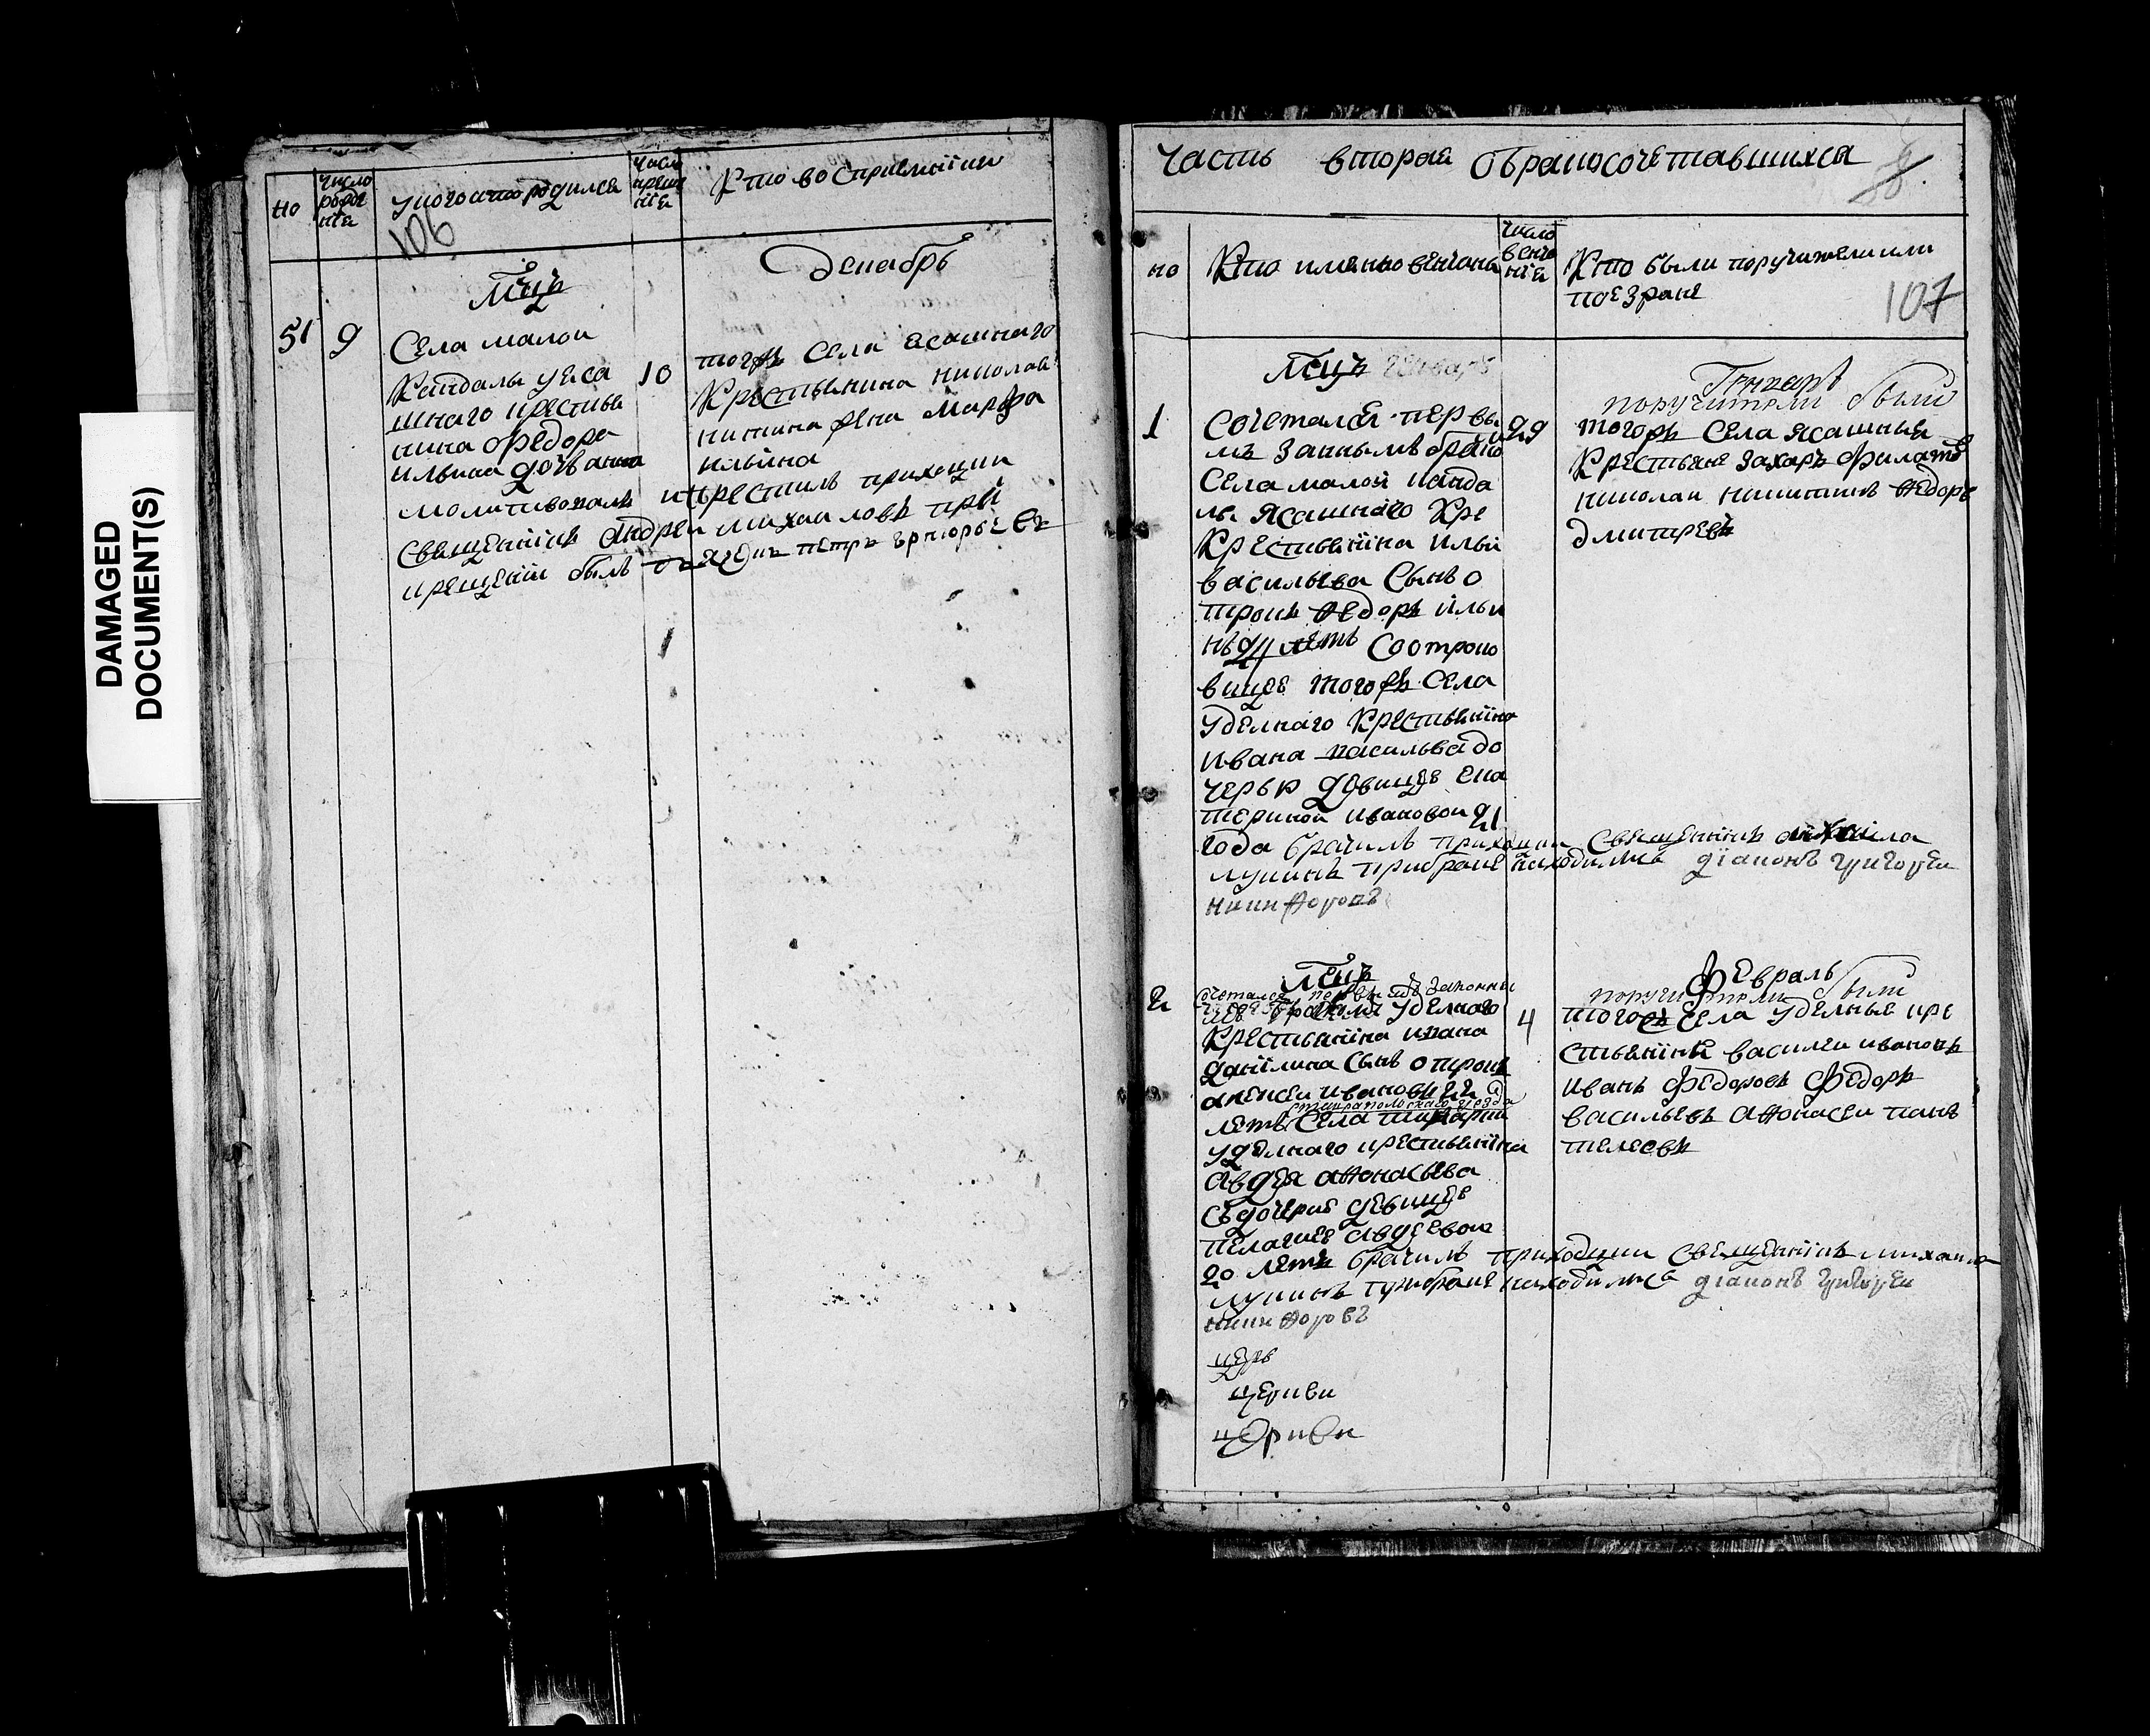 DAMAGED
DOCUMENT(S)
но
число
рожде
нїя
у кого кто родился
число
креще
нїя
Кто воспрiемники
106
Мцъ
декабрь
51
9
Села малой
Кандалы у яса
шнаго крестья
нина Федора
ильина дочь анна
10
тогожъ Села ясашнаго
Крестьянина николая
никитина жена Марфа
ильина
молитвовалъ и крестилъ приходски
священникъ андреи михаиловъ при
крещенїи былъ дьячекъ петръ
часть вторая о бракосочетавшихся
но
Кто имянно венчаны
число
венча
нїя
Кто были поручители или
поезжане
107
Мцъ Генварь
Генварь
поручители были
1
сочетался первы
мъ законнымъ бракомъ
Села малой канда
лы ясашнаго Кре
Крестьянїна ильи
васильева Сынъ о
трокъ Ѳедоръ ильи
нъ 24 летъ Соотроко
вицее тогожъ Села
уделнаго Крестьянїна
ивана васильва до
черью девицее ека
териной ивановои 21
года брачилъ приходски Священникъ михаила
лукинъ прибраке находились дїаконъ григореи
никифоровъ
29
тогожъ Села ясашныя
Крестьяне захаръ Филатовъ
николаи никитинъ Ѳедоръ
дмитревъ
Мцъ
Февраль
поручители были
2
сочетался первымъ законны
мъ бракомъ уделнаго
Крестьянїна ивана
данїлина сынъ отрокъ
алексеи ивановъ 22
ставропольскаго уезда
летъ Села
уделнаго крестьянїна
авдея аѲонасьева
съ дочерью девицее
пелагиее авдеевои
20 летъ брачилъ приходски Священнїкъ михаила
лукинъ прибраке находились дїаконъ григореи
никиѲоровъ
4
тогожъ Села уделные кре
стьянїне василеи ивановъ
иванъ Федоровъ Федоръ
васильевъ аѲонасеи пан
телеевъ
церкви
церкви